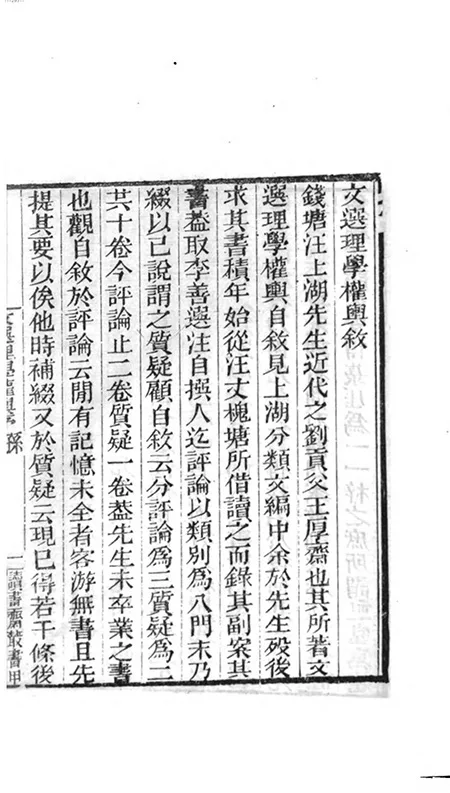 文選理學權輿敘
錢塘汪上湖先生近代之劉貢父王厚齋也其所著文
選理學權輿自敘見上湖分類文編中余於先生歿後
求其書積年始從汪丈槐塘所借讀之而錄其副案其
書葢取李善選注自撰人迄評論以類別爲八門末乃
綴以己說謂之質疑顧自敘云分評論爲三質疑爲二
共十卷今評論止二卷質疑一卷葢先生未卒業之書
也觀自敘於評論云閒有記憶未全者客游無書且先
提其要以俟他時補綴又於質疑云現已得若干條後
文選理學權輿
孫
一
讀畫齋叢書甲